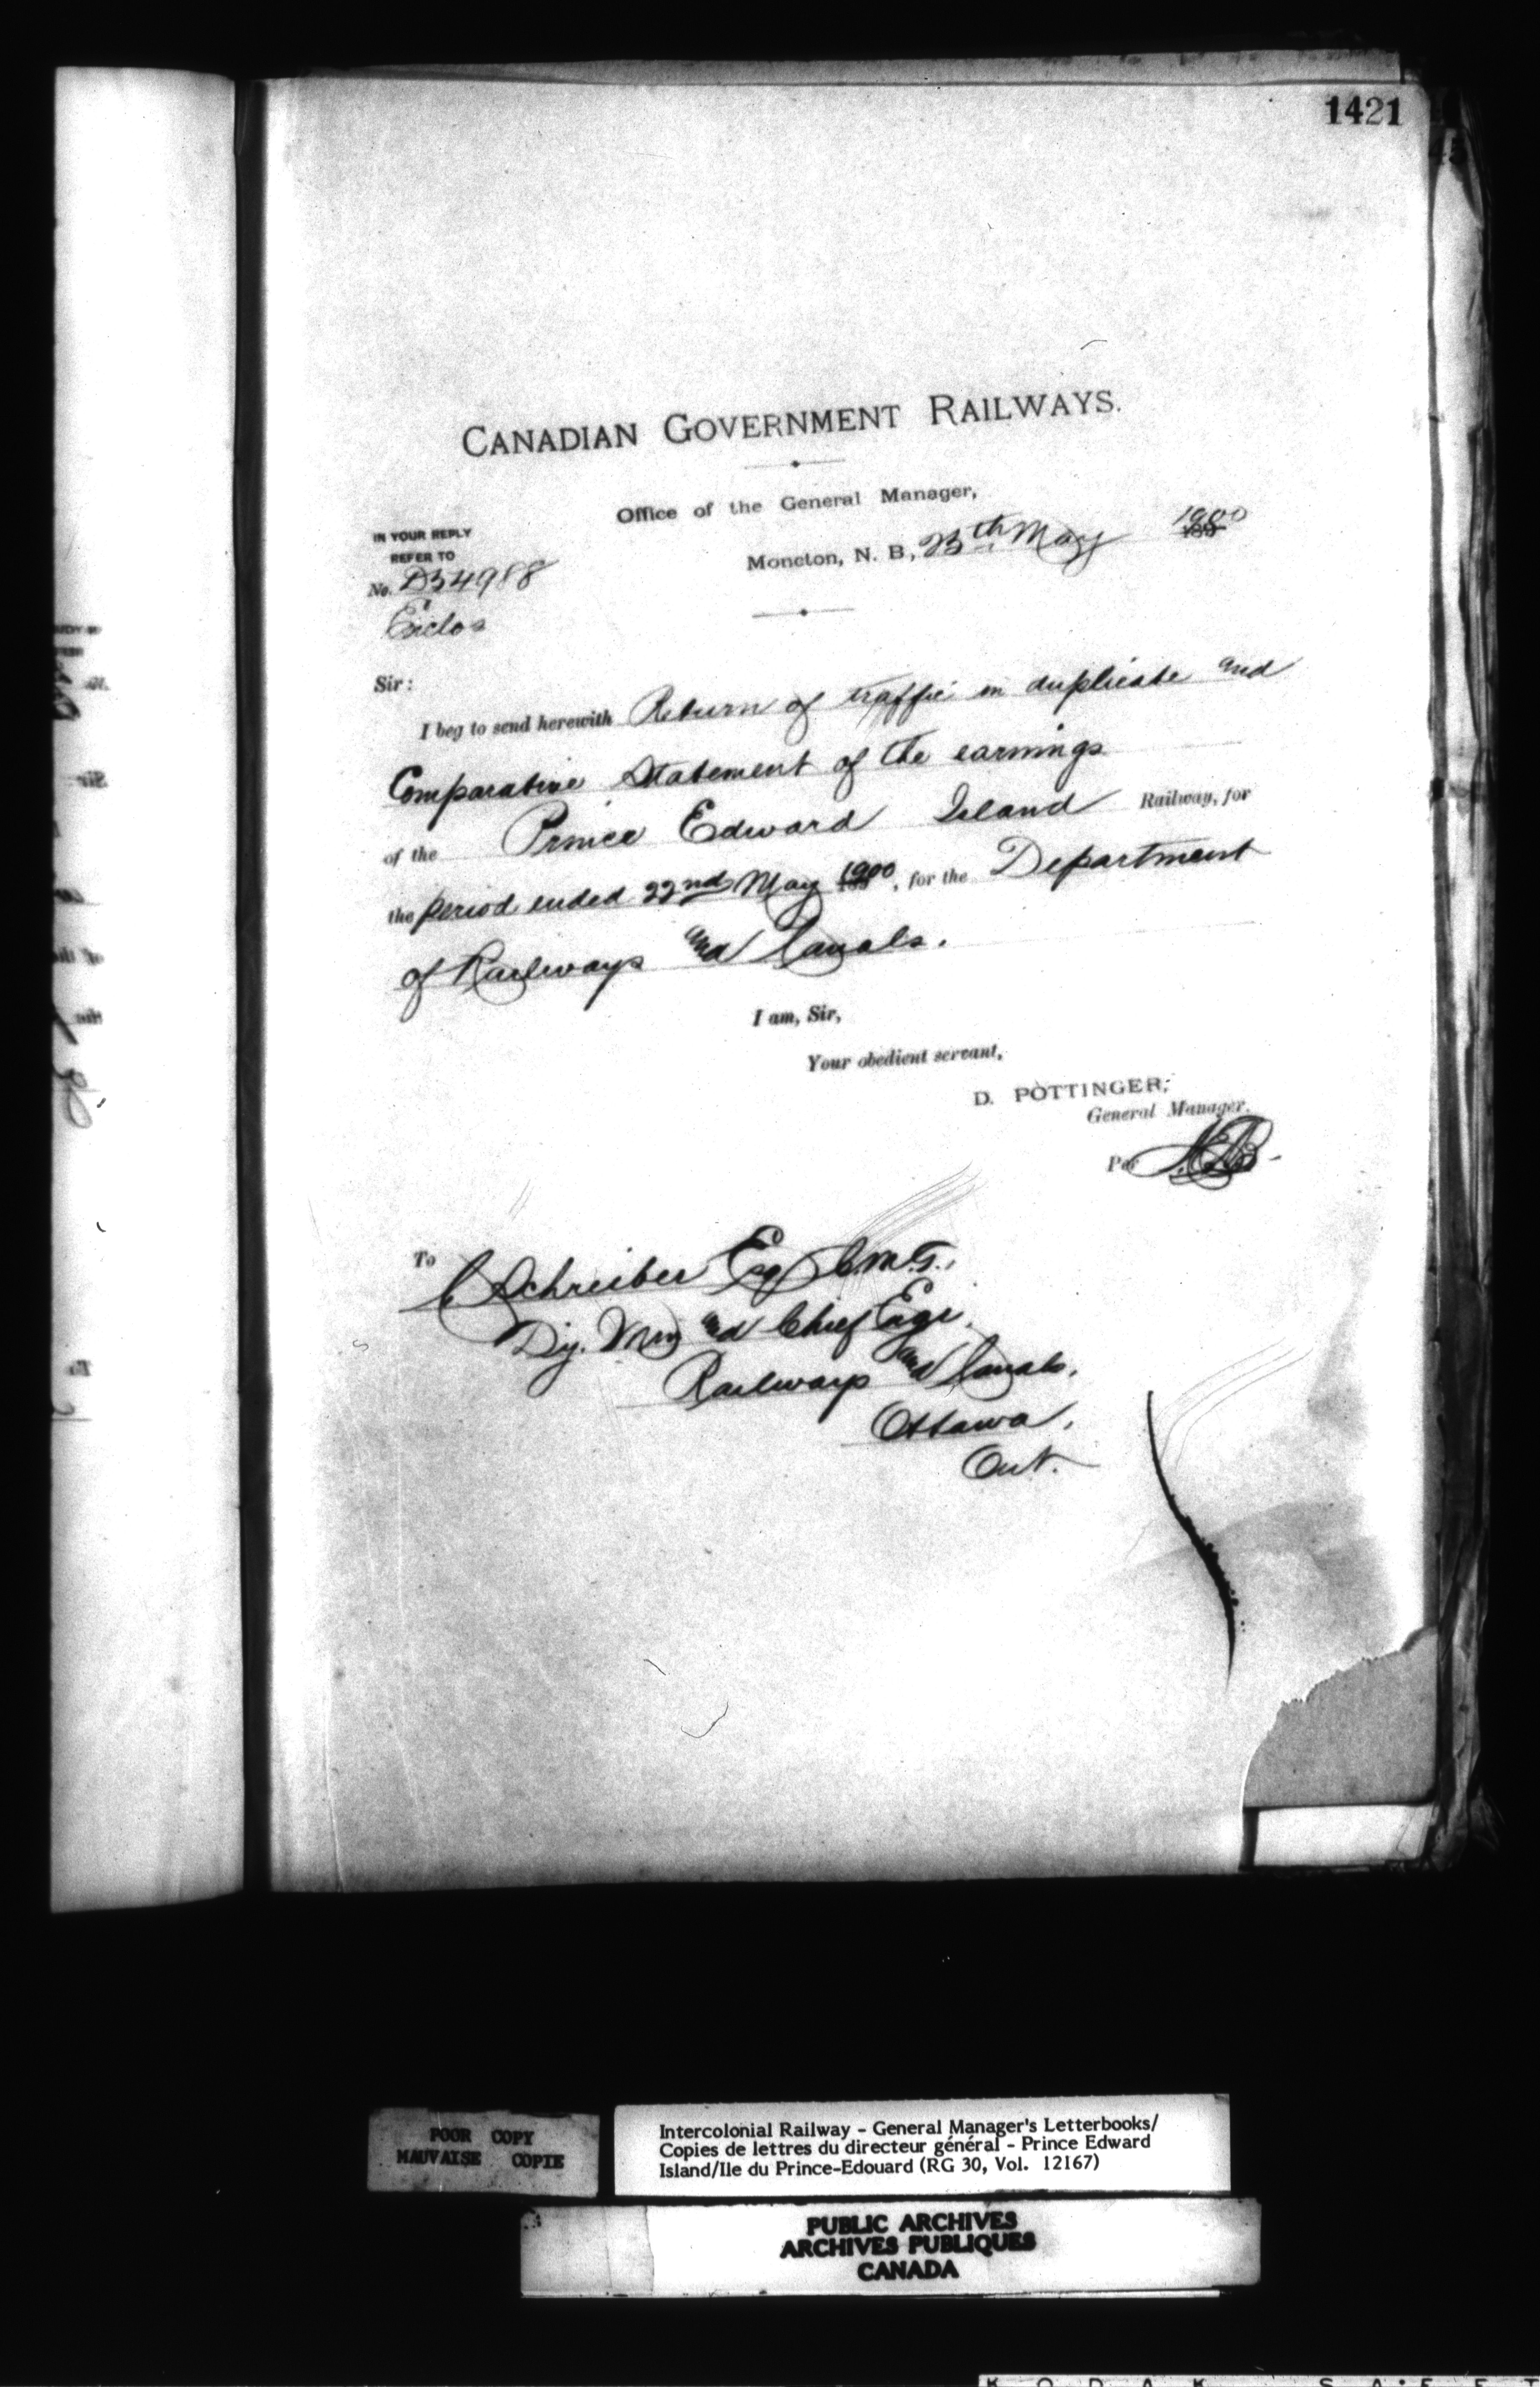 1421
CANADIAN GOVERNMENT RAILWAYS.
Office of the General Manager,
Moncton, N. B., 25th May 1900
IN YOUR REPLY
REFER TO
No. D34988
Enclos
Sir:
I beg to send herewith Return of traffic in duplicate and
Comparative Statement of the earnings
of the Prince Edward Island Railway, for
the period ended 22nd May 1900, for the Department
of Railways and Canals.
I am, Sir,
Your obedient servant,
D. POTTINGER,
General Manager.
Per
To
C Schreiber Esq C.M.G.,
Dy. Min and Chief Engr.
Railways and Canals.
Ottawa,
Ont.
POOR COPY
MAUVAISE COPIE
Intercolonial Railway - General Manager's Letterbooks/
Copies de lettres du directeur général - Prince Edward
Island/Ile du Prince-Edouard (RG 30, Vol. 12167)
PUBLIC ARCHIVES
ARCHIVES PUBLIQUES
CANADA